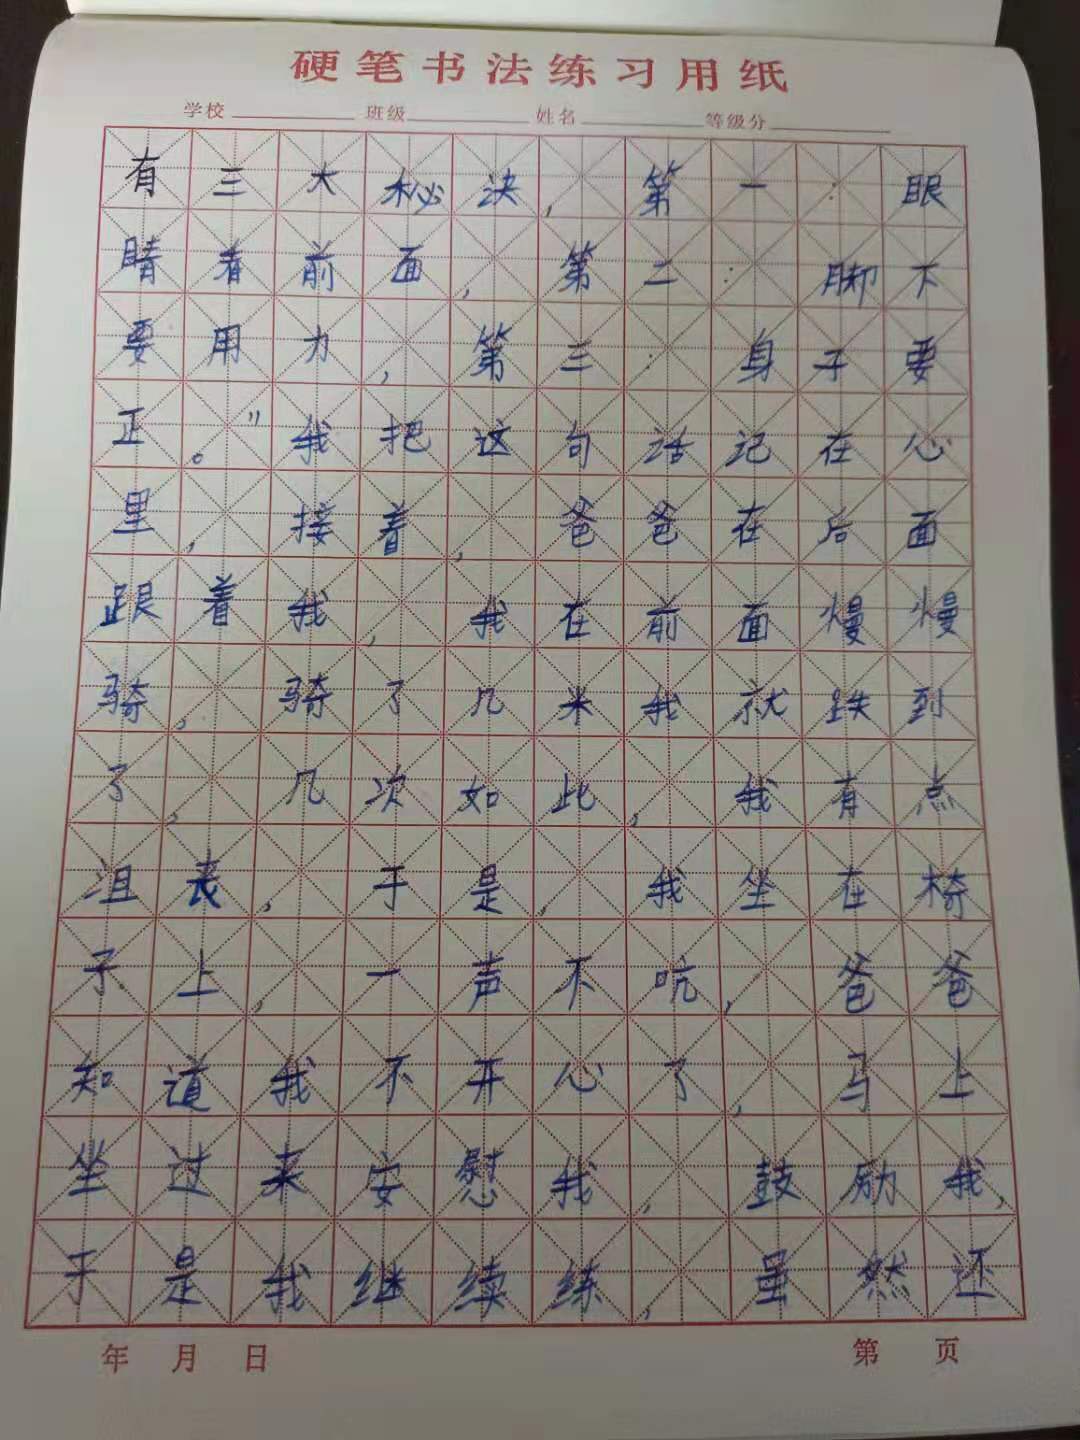 硬笔书法练习用纸
学校 班级 姓名 等级分
有三大秘决,第一:眼
睛看前面,第二:脚下
要用力,第三:身子要
正。"我把这句话记在心
里,接着,爸爸在后面
跟着我,我在前面慢慢
骑,骑了几米我就跌到
了,几次如此,我有点
沮丧,于是,我坐在椅
子上,一声不吭,爸爸
知道我不开心了,马上
坐过来安慰我,鼓励我,
于是我继续练,虽然还
年 月 日 第 页